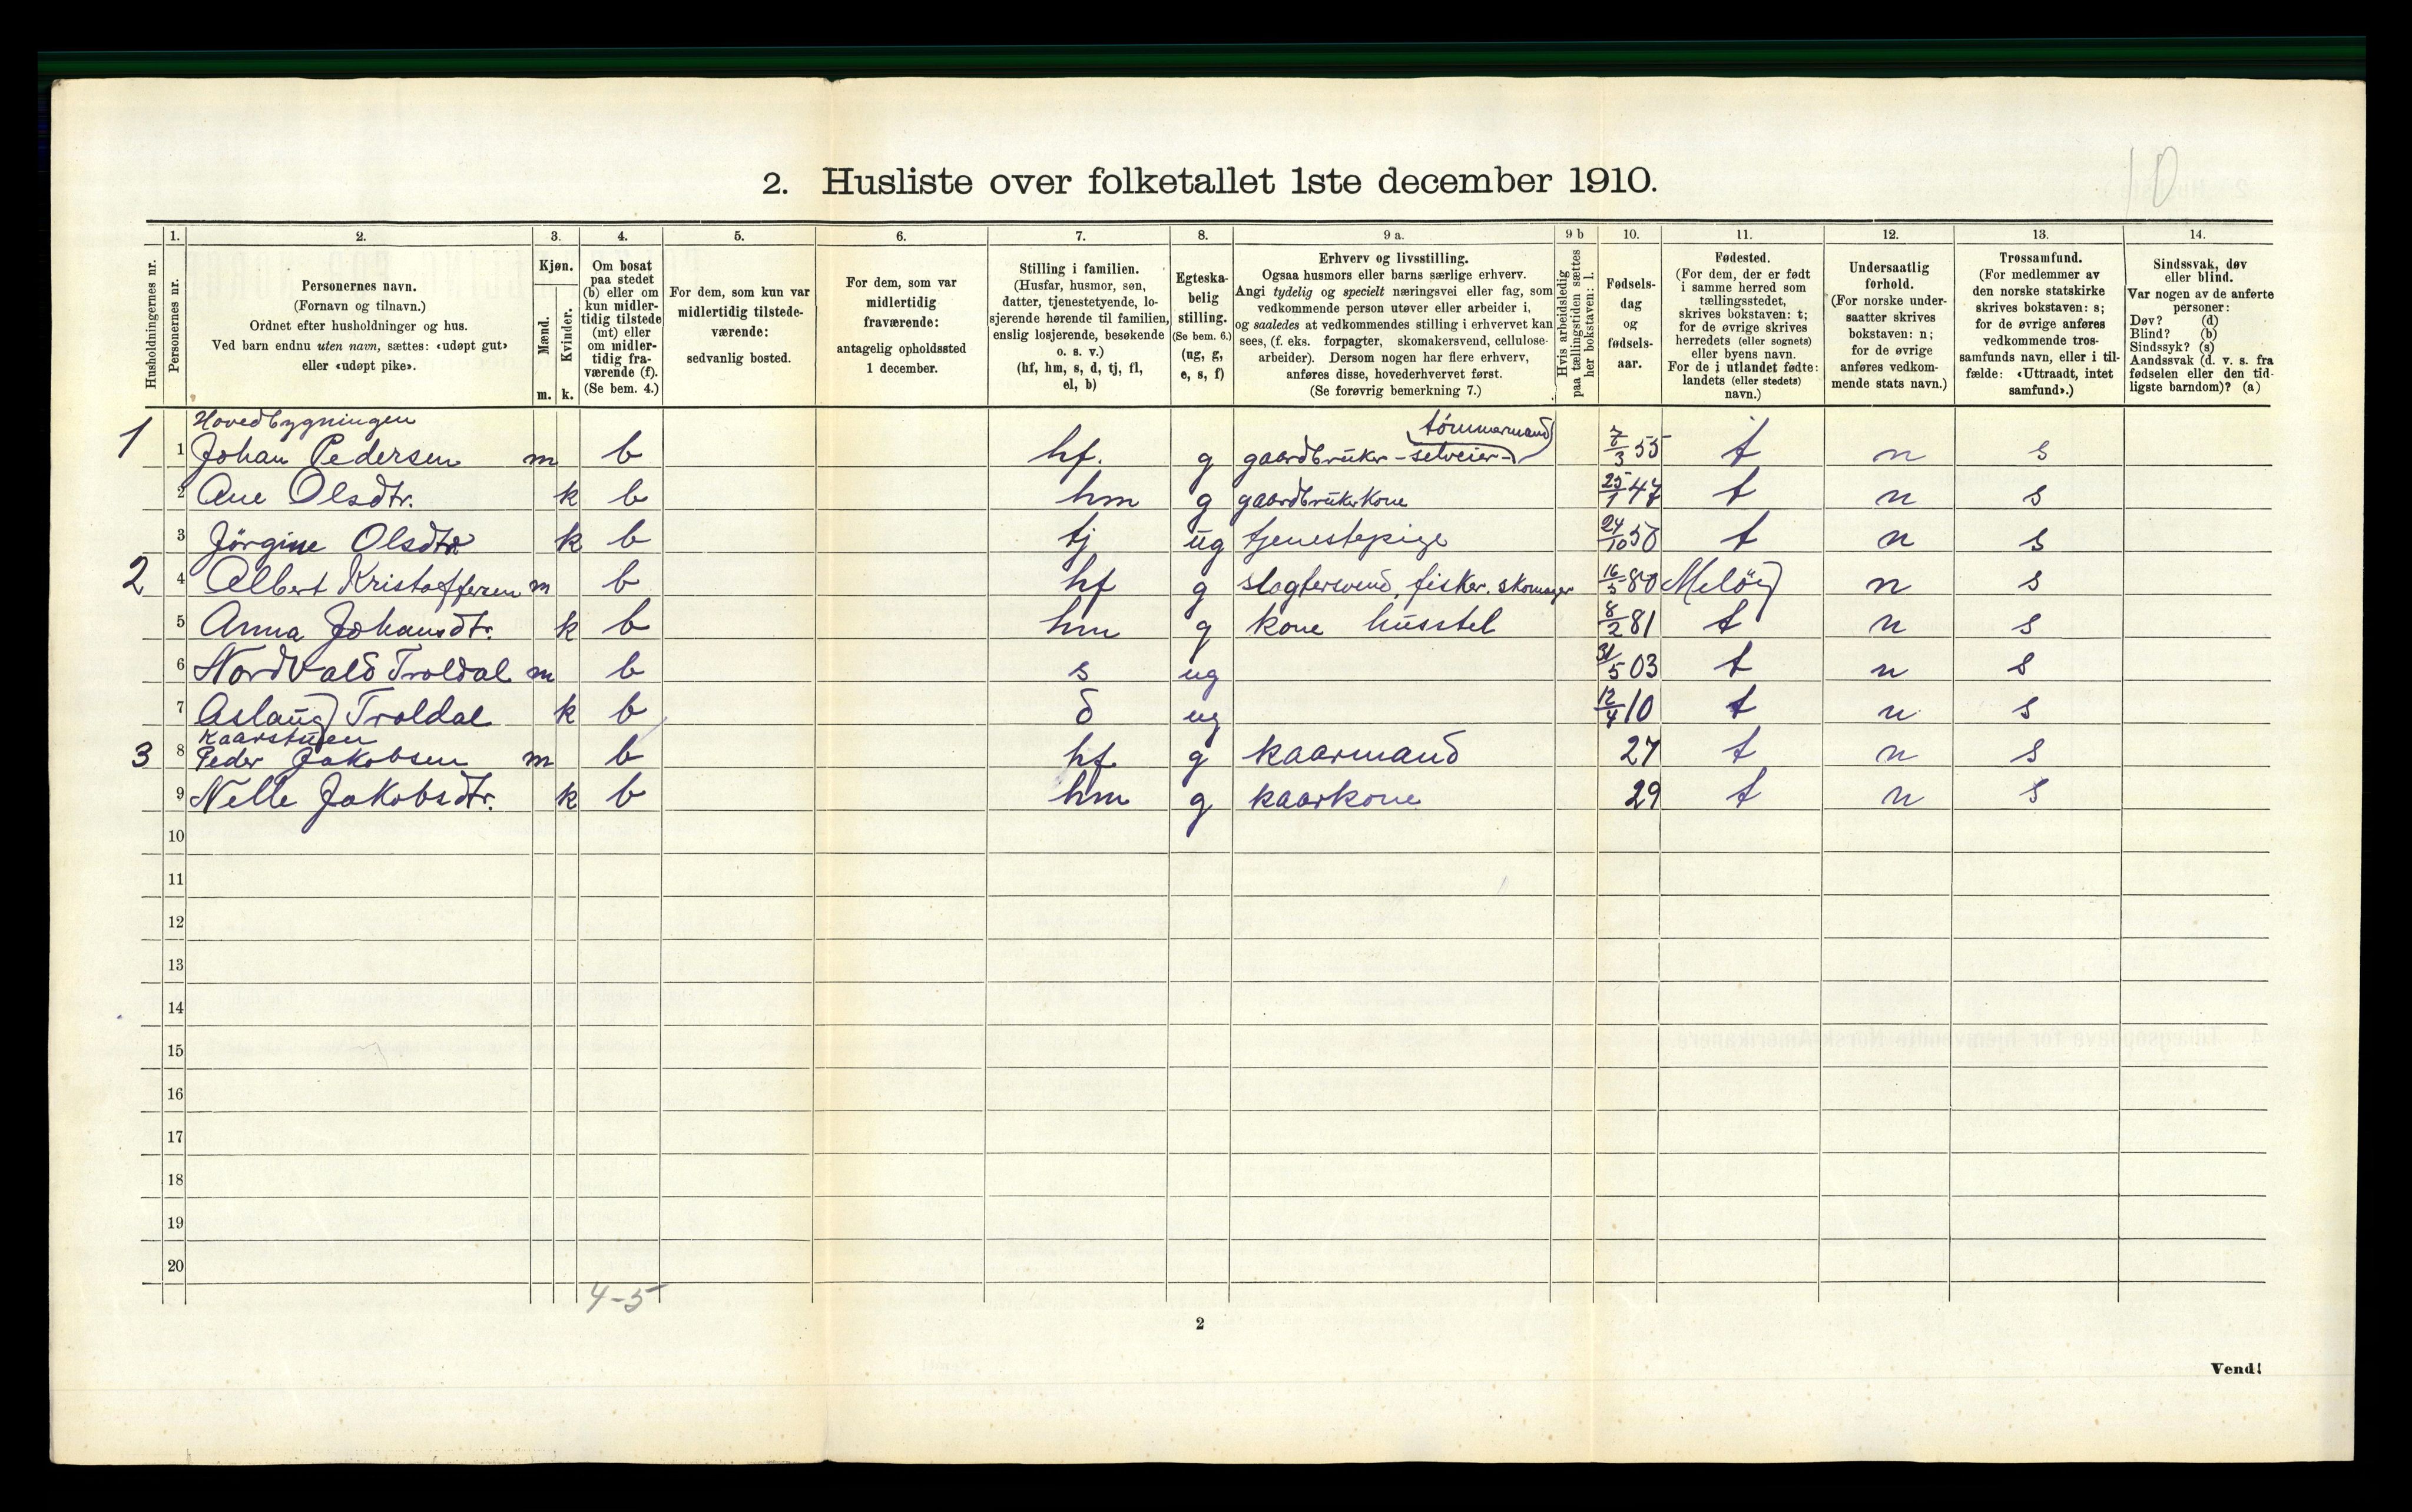 10
2. Husliste over folketallet 1ste december 1910.
1. 2. 3. 4. 5. 6. 7. 8. 9 a. 9 b 10. 11. 12. 13. 14.
Husholdningernes nr.
Personernes nr.
Personernes navn.
(Fornavn og tilnavn.)
Ordnet efter husholdninger og hus.
Ved barn endnu uten navn, sættes: «udøpt gut»
eller «udøpt pike».
Kjøn.
Mænd. Kvinder.
m. k.
Om bosat
paa stedet
(b) eller om
kun midler-
tidig tilstede
(mt) eller
om midler-
tidig fra-
værende (f).
(Se bem. 4.)
For dem, som kun var
midlertidig tilstede-
værende:
sedvanlig bosted.
For dem, som var
midlertidig
fraværende:
antagelig opholdssted
1 december.
Stilling i familien.
(Husfar, husmor, søn,
datter, tjenestetyende, lo-
sjerende hørende til familien,
enslig losjerende, besøkende
o. s. v.)
(hf, hm, s, d, tj, fl,
el, b)
Egteska-
belig
stilling.
(Se bem. 6.)
(ug, g,
e, s, f)
Erhverv og livsstilling.
Ogsaa husmors eller barns særlige erhverv.
Angi tydelig og specielt næringsvei eller fag, som
vedkommende person utøver eller arbeider i,
og saaledes at vedkommendes stilling i erhvervet kan
sees, (f. eks. forpagter, skomakersvend, cellulose-
arbeider). Dersom nogen har flere erhverv,
anføres disse, hovederhvervet først.
(Se forøvrig bemerkning 7.)
Hvis arbeidsledig
paa tællingstiden sættes
her bokstaven: l.
Fødsels-
dag
og
fødsels-
aar.
Fødested.
(For dem, der er født
i samme herred som
tællingsstedet,
skrives bokstaven: t;
for de øvrige skrives
herredets (eller sognets)
eller byens navn.
For de i utlandet fødte:
landets (eller stedets)
navn.)
Undersaatlig
forhold.
(For norske under-
saatter skrives
bokstaven: n;
for de øvrige
anføres vedkom-
mende stats navn.)
Trossamfund.
(For medlemmer av
den norske statskirke
skrives bokstaven: s;
for de øvrige anføres
vedkommende tros-
samfunds navn, eller i til-
fælde: «Uttraadt, intet
samfund».)
Sindssvak, døv
eller blind.
Var nogen av de anførte
personer:
Døv? (d)
Blind? (b)
Sindssyk? (s)
Aandssvak (d. v. s. fra
fødselen eller den tid-
ligste barndom)? (a)
Hovedbygningen
tømmermand
1 1 Johan Pedersen m b hf. g gaardbruker - selveier - 7/3 55 t n s
2 Ane Olsdtr. k b hm g gaardbrukerkone 25/1 47 t n s
3 Jörgine Olsdtr k b tj ug tjenestepige 24/10 50 t n s
2 4 Albert Kristoffersen m b hf g slagtersvend, fisker, skomager 16/5 80 Melöy n s
5 Anna Johansdtr. k b hm g kone husstel 8/2 81 t n s
6 Nordvald Troldal m b s ug 31/5 03 t n s
7 Aslaug Troldal k b d ug 12/4 10 t n s
Kaarstuen
3 8 Peder Jakobsen m b hf g kaarmand 27 t n s
9 Nelle Jakobsdtr. k b hm g kaarkone 29 t n s
10
11
12
13
14
15
16
17
18
19
20
4-5
2
Vend!